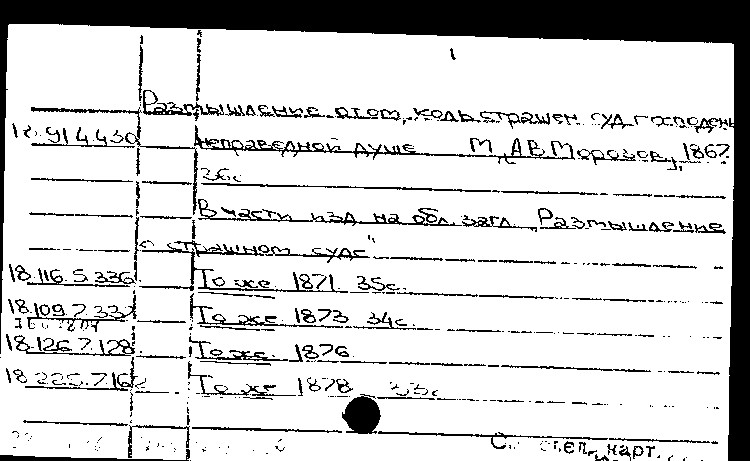 1
Размышление о том, коль страшен суд господень
18.914.430 неправедной душе М., [А В Морозов], 1867.
36с
В части изд. на обл. загл. "Размышление
о страшном суде"
18.116.5.336 То же 1871. 35с.
18.109.7.332 То же. 1873 34с.
18.126.7.128. То же. 1876
18.225.7.162 То же 1878 33с